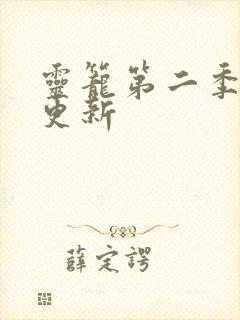 靈籠第二季
更新
薛定諤